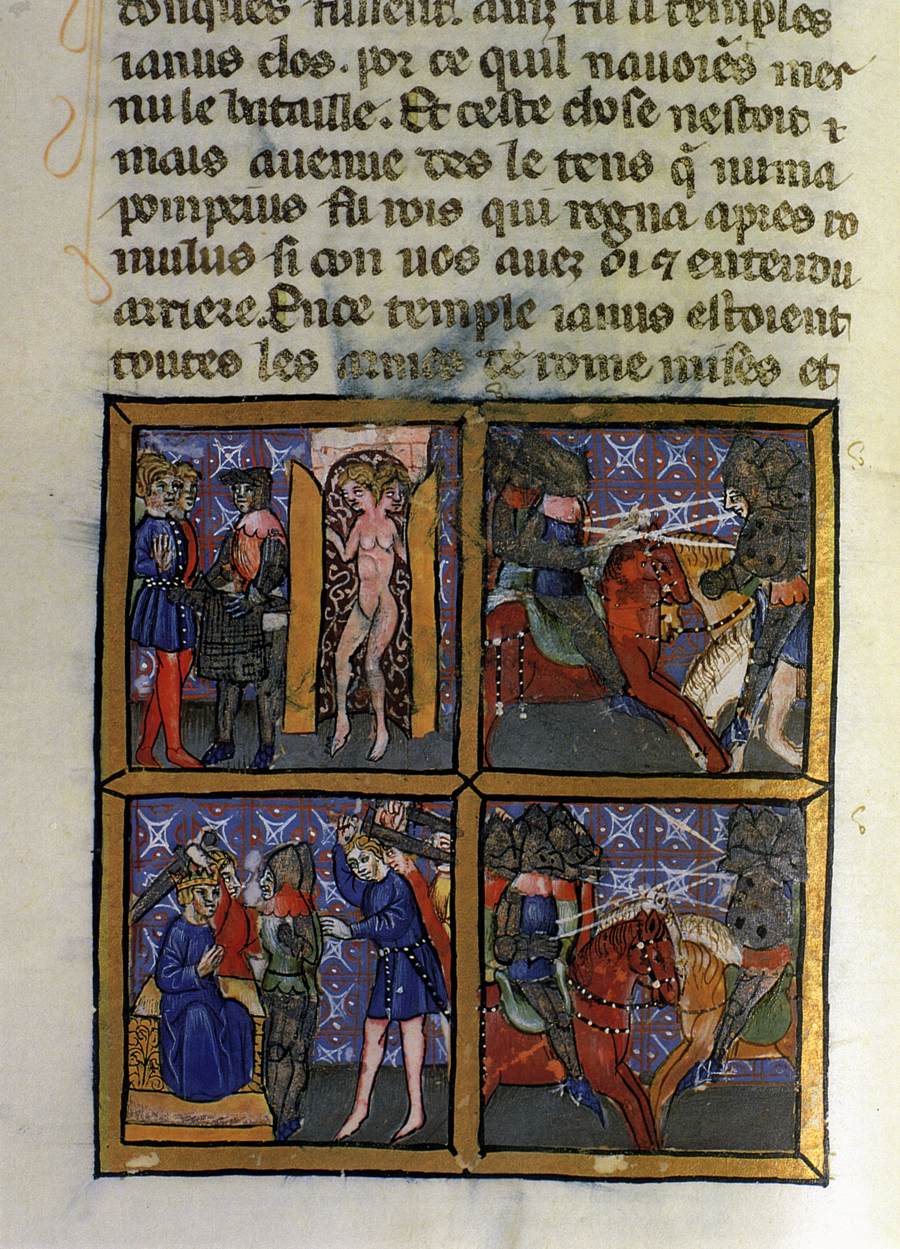 conques fussent. auiz fu li temples
ianus clos. por ce quil nauoiẽs mer
nule bataille. Et ceste chose nestoit
mais auenue des le tens q̃ numa
pompeius fu rois qui regna apres ro
mulus si con uos auez oi ⁊ entendu
arriere. En ce temple ianus estoient
toutes les armes de rome mises et